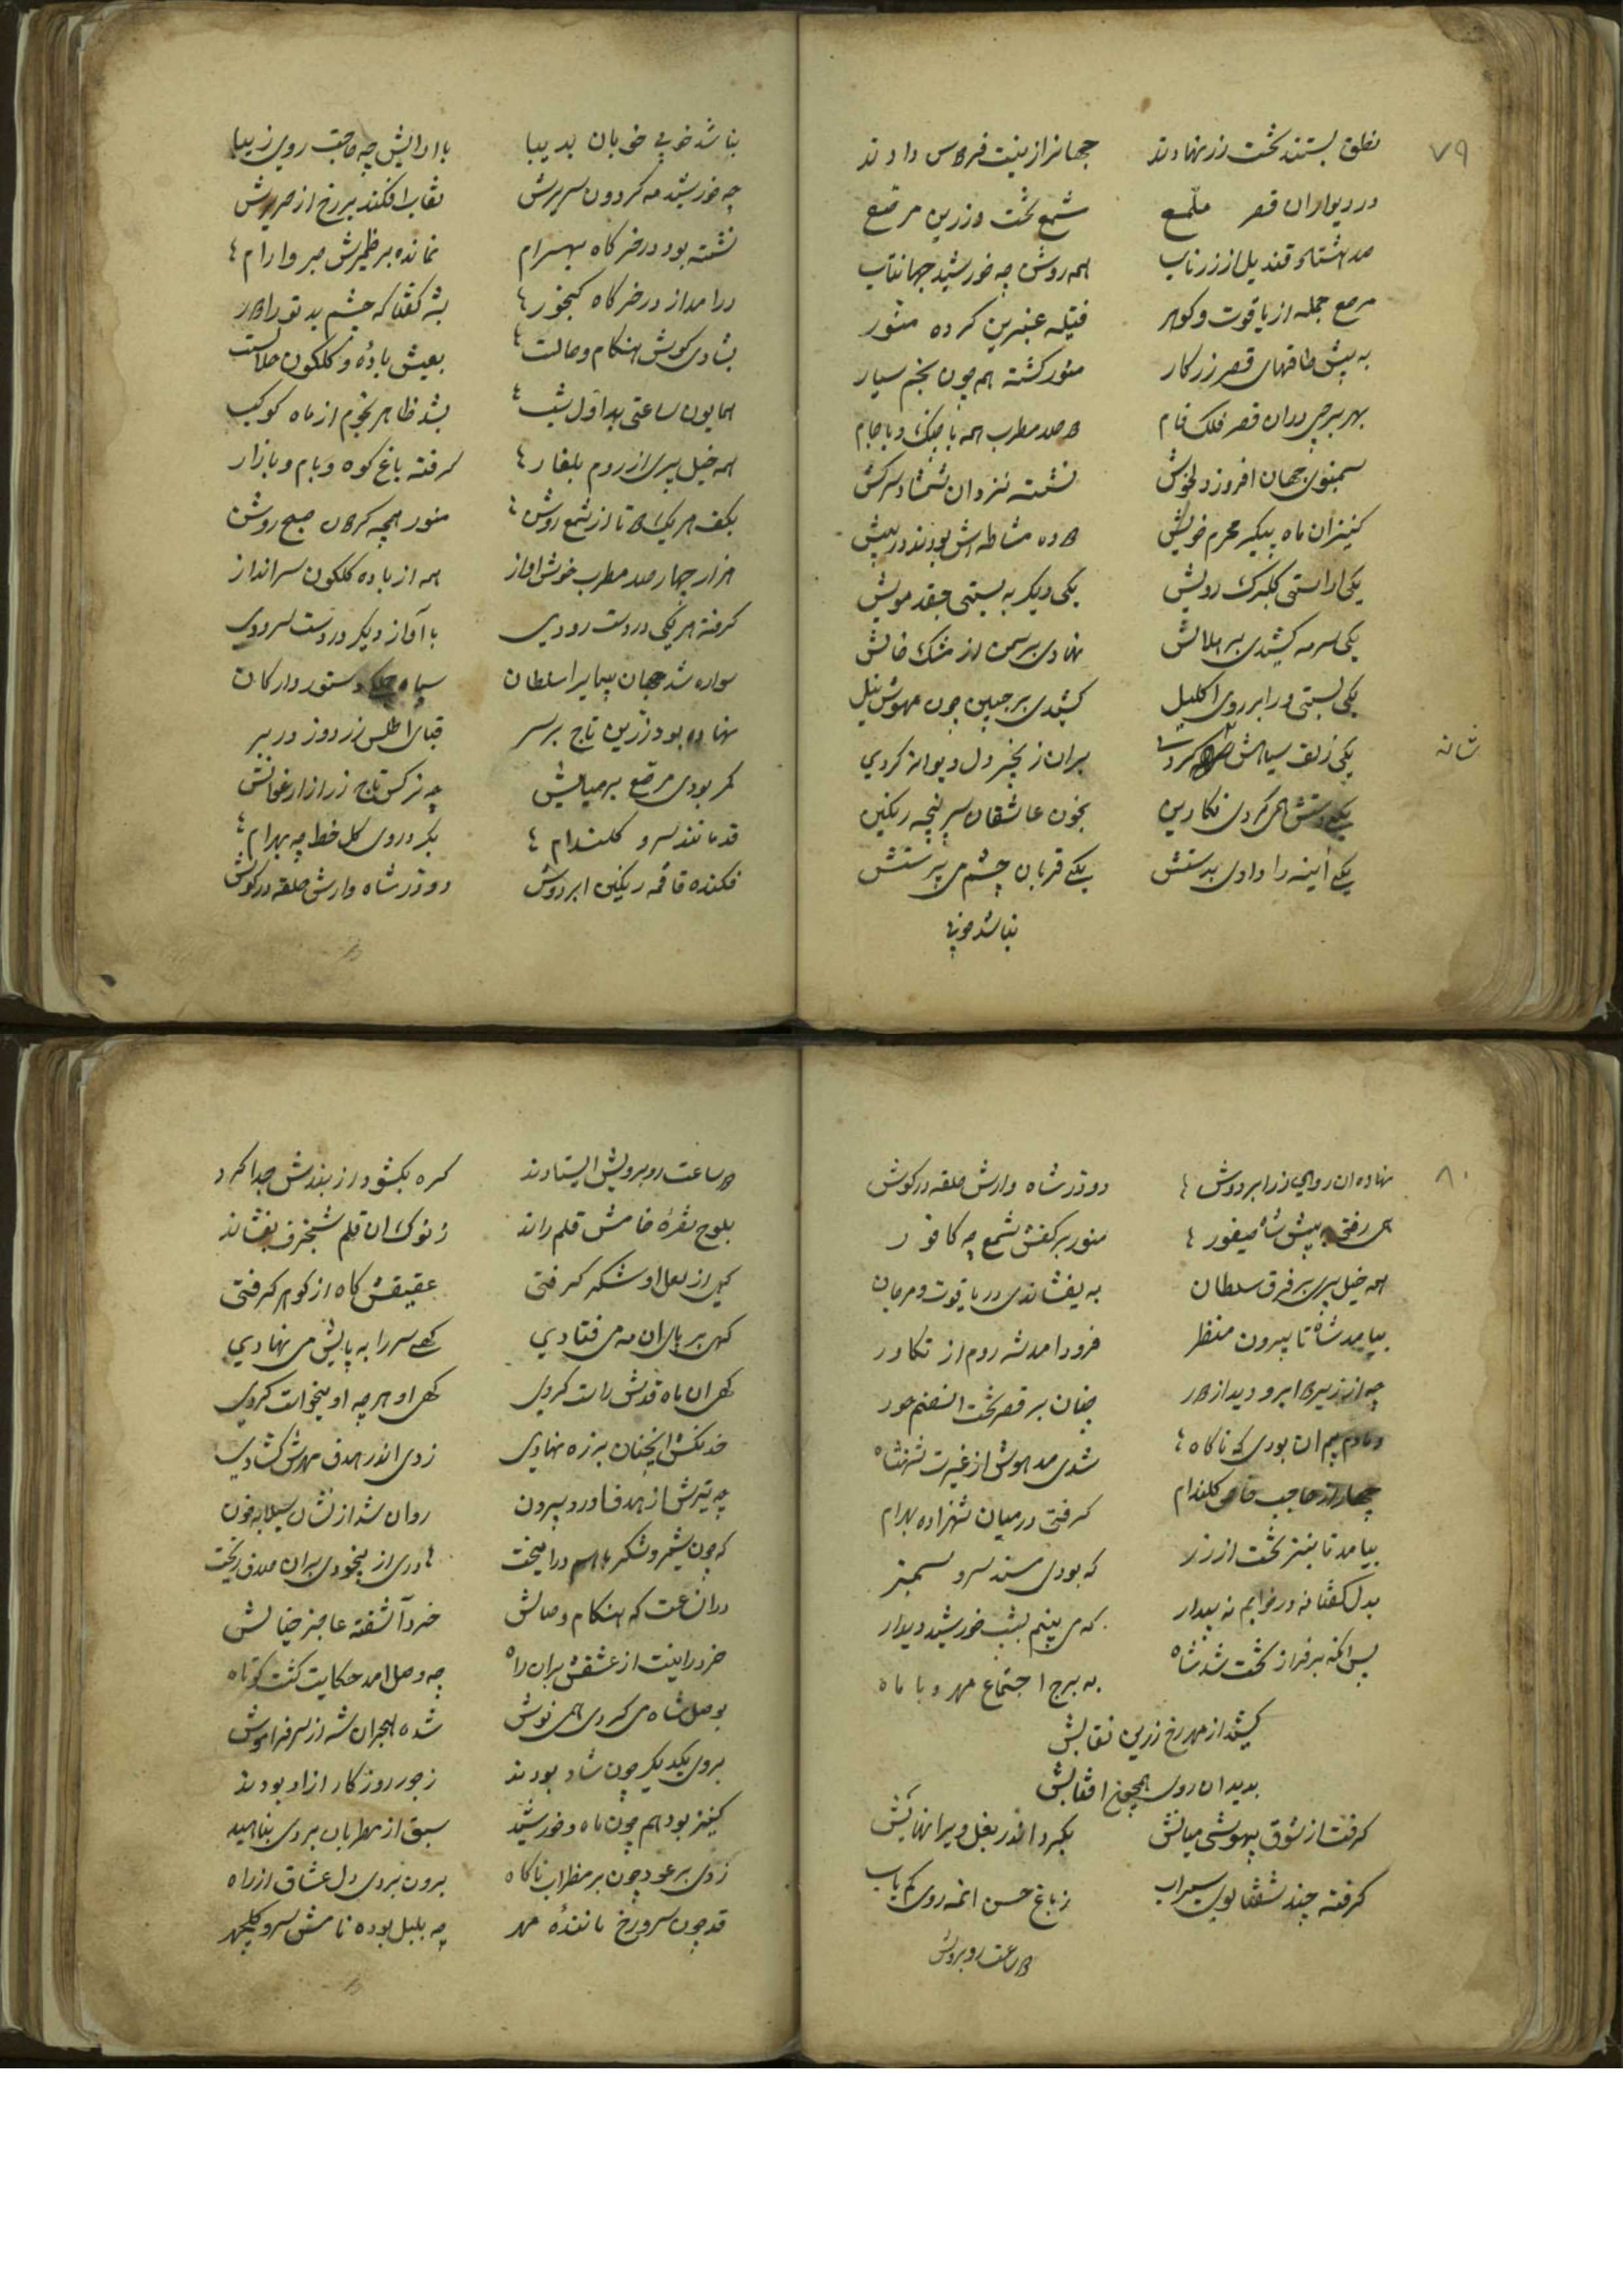 ۷۹
نطق بستند تخت زر نهادند جهانرا زینت فردوس دادند
در دیواران قصر ملمع شمع تخت و زرین مرصع
صد هشتاد قندیل از زر ناب همه روشن چه خورشید جهانتاب
مرصع جمله از یاقوت و کوهر فتیله عنبرین کرده منور
به پیش طاقهای قصر زرکار منور کشته هم چون نجم سیار
بهر برجی دران قصر فلک فام دو صد مطرب همه با چنک و با جام
سمنبوی جهان افروز دلخوش نشسته نزد ان شمشاد سرکش
کنیزان ماه پیکر محرم خویش دو ده مشاطه اش بودند در پیش
یکی اراستی کلبرک رویش یکی دیکر به بستی عقد مویش
یکی سرمه کشیدی بر هلالش نهادی بر سمن از مشک خالش
یکی بستی ورا بر روی اکلیل کشیدی بر جبین چون مهوش نیل
یکی زلف سیاهش شانه کردی بران زنجیر دل دیوانه کردی
یکی دستش همی کردی نکارین بخون عاشقان سر پنجه رنکین
یکی آینه را دادی بدستش یکی قربان چشم می پرستش
نباشد خوبی
نباشد خوبی خوبان بدیبا باارایش چه حاجت روی زیبا
چه خورشید مه کردون سریرش نقاب افکند بر رخ از حریرش
نشسته بود در خرکاه بهرام نمانده بر ظمیرش صبر و ارام
درامد از در خرکاه کیخور بشه کفتا که چشم بد تو را دور
بشادی کوش هنکام وصالت بعیش باده و کلکون حلالست
همایون ساعتی بد اول شب بشد ظاهر نجوم از ماه کوکب
همه خیل پری از روم بلغار کرفته باغ کوه و بام و بازار
بکف هر یک دو تا از شمع روشن منور همچه کردن صبح روشن
هزار چهار صد مطرب خوش اواز همه از باده کلکون سرانداز
کرفته هر یکی در دست رودی با آواز دیکر در دست سرودی
سواره شد جهان پیما بر اسلطان سپاه دستور و ارکان
نهاده بود زرین تاج بر سر قبای اطلس زردوز در بر
کمر بودی مرصع بر میانش چه نرکس تاج زر از ارغوانش
قد مانند سرو کلندام بکرد روی کل خط چه بهرام
فکنده قاقمه رنکین ابر دوش دو در شاه وارش حلقه در کوش
۸۰
نهاده ان روای زر ابر دوش دو در شاه وارش حلقه در کوش
همی رفتی به پیش شاه فیغور منور بر کفش شمع چه کافور
همه خیل پری بر فرق سلطان به یفشاندی در یاقوت و مرجان
بیامد شاه تا بیرون منظر فرود امد شه روم از تکاور
چه از زیر دو ابرو دید از دور چنان بر قصر تخت انصنم حور
دمادم بیم ان بودی که ناکاه شدی مدهوش از غیرت شهنشاه
چهار از حاجب خاص کلندام کرفتی در میان شهزاده بهرام
بیامد تا بنزد تخت از زر که بودی مسند سرو سمنبر
بدل کفتا نه در خوابم نه بیدار که می بینم بشب خورشید دیدار
پس انکه بر فراز تخت شد شاه به برج اجتماع مهر و با ماه
کشید از مهر رخ زرین نقابش
بدید ان روی همچون افتابش
کرفت از شوق بیهوشی میانش بکیرد اندر بغل و یرا نهانیش
کرفته چند شفتالوی سیراب ز باغ حسن انمه روی کم یاب
دو ساعت روبرویش
دو ساعت روبرویش ایستادند کره بکشود از بندش جدا کرد
بلوح نقره خامش قلم راند ز نوک ان قلم شنجرف بفشاند
کهی از لعل او شکر کرفتی عقیقش کاه از کوهر کرفتی
کهی بر پای ان مه می فتادی کهی سر را به پایش می نهادی
کهی ان ماه قدش راست کردی کهی او هر چه او میخواست کردی
خدنکش انچنان بر زه نهادی زدی اندر هدف مهرش کشادی
چه تیرش از هدف اورد بیرون روان شد از نشان سیلابه خون
که چون شیر و شکر باهم درامیخت دری از بیخودی بران صدف ریخت
دران ساعت که هنکام وصالش خرد آشفته عاجز خیالش
خرد را نیست از عشقش بران راه چه وصل امد حکایت کشت کوتاه
بوصل شاه می کردی همی نوش شده هجران شه از سر فراموش
بروی یکدیکر چون شاد بودند ز جور روزکار ازاد بودند
کنیز بود هم چون ماه و خورشید سبق از مطربان بردی بناهید
زدی بر عود چون بر مضراب ناکاه برون بردی دل عشاق از راه
قد چون سرو رخ مانندهٔ مهر چه بلبل بوده نامش سرو کلچهر